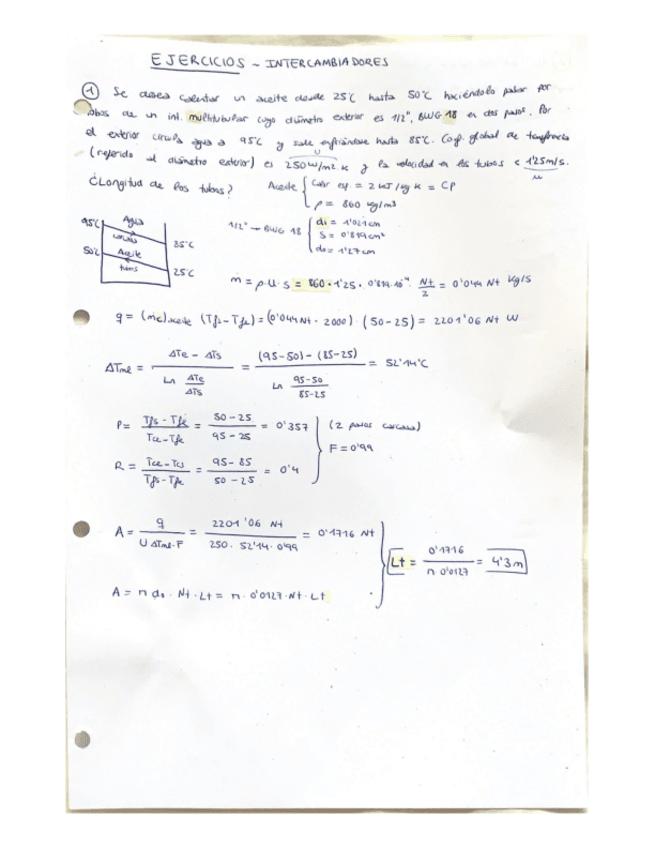 EJERCICIOS - INTERCAMBIADORES
① Se desea calentar un aceite desde 25ºC hasta 50ºC haciéndolo pasar por
tubos de un int. multitubular cuyo diámetro exterior es 1/2", BWG 18 en dos pasos. Por
el exterior circula agua a 95ºC y sale enfriándose hasta 85ºC. Coef. global de transferencia
(referido al diámetro exterior) es 250 W/m2.K y la velocidad en los tubos < 1'25m/s.
U
u
¿Longitud de los tubos?
Aceite { Calor esp. = 2 kJ/kg K = CP
ρ = 860 kg/m3
95ºC Agua
carcasa 85ºC
50ºC Aceite
tubos 25ºC
1/2" → BWG 18 { di = 1'021cm
S = 0'819cm²
do = 1'27cm
m = ρ.u.s = 860 · 1'25 · 0'819.10⁻⁴ · Nt/2 = 0'044 Nt kg/s
q = (mc)aceite (Tfs - Tfe) = (0'044Nt · 2000) · (50 - 25) = 2201'06 Nt W
ΔTml = (ΔTe - ΔTs) / (Ln ΔTe/ΔTs) = ((95-50) - (85-25)) / (Ln 95-50/85-25) = 52'14ºC
P = (Tfs - Tfe) / (Tce - Tfe) = (50 - 25) / (95 - 25) = 0'357
(2 pasos carcasa)
F = 0'99
R = (Tce - Tcs) / (Tfs - Tfe) = (95 - 85) / (50 - 25) = 0'4
A = q / (U ΔTml·F) = 2201'06 Nt / (250 · 52'14 · 0'99) = 0'1716 Nt
Lt = 0'1716 / (π 0'0127) = 4'3m
A = π do · Nt · Lt = π · 0'0127 · Nt · Lt